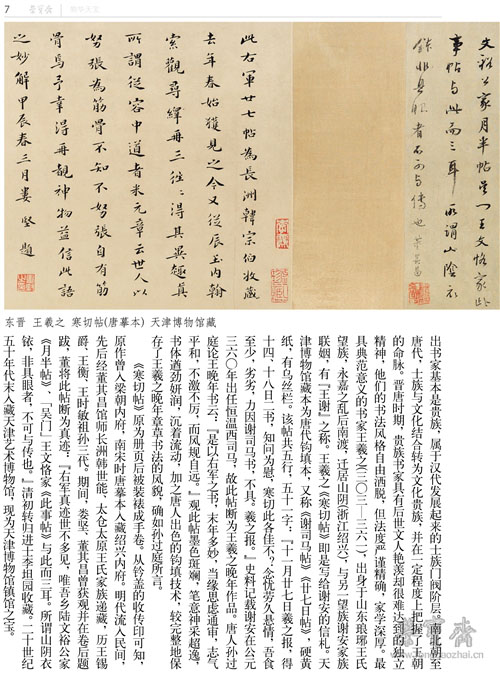 7
荣宝斋
文裕公家月半帖吳門王文恪家此
事帖与此而三耳所謂山陰衣
鉢非具眼者不可与傳也董其昌
此右軍廿七帖為長洲韓宗伯收藏
去年春始獲見之今又從辰玉內翰
索觀尋繹再三往往得其異趣真
所謂從容中道者米元章云世人以
努張為筋骨不知不努張自有筋
骨焉予幸得再覩神物益信此語
之妙解甲辰春三月婁堅題
东晋 王羲之 寒切帖(唐摹本) 天津博物馆藏
出书家基本是贵族，属于汉代发展起来的士族门阀阶层。南北朝至
唐代，士族与文化结合转为文化贵族，并在一定程度上把握了王朝
的命脉。晋唐时期，贵族书家具有后世文人艳羡却很难达到的独立
精神，他们的书法风格自由洒脱，但法度严谨精确，家学深厚。最
具典范意义的书家王羲之（三〇三—三六一），出身于山东琅琊王氏
望族，永嘉之乱后南渡，迁居山阴（浙江绍兴），与另一望族谢安家族
联姻，有『王谢』之称。王羲之《寒切帖》即是写给谢安的信札。天
津博物馆藏本为唐代钩填本，又称《谢司马帖》《廿七日帖》，硬黄
纸，有乌丝栏。该帖共五行，五十一字：『十一月廿七日羲之报，得
十四、十八日二书，知问为慰，寒切此各佳不，念忧劳久悬情，吾食
至少，劣劣，力因谢司马书，不具。羲之报。』史料记载谢安在公元
三六〇年出任恒温西司马，故此帖断为王羲之晚年作品。唐人孙过
庭论王晚年书云，『是以右军之书，末年多妙，当缘思虑通审，志气
平和，不激不厉，而风规自远。』观此帖墨色斑斓，笔意神采超逸，
书体遒劲妍润，沉着流动，加之唐人出色的钩填技术，较完整地保
存了王羲之晚年章草书法的风貌，确如孙过庭所言。
《寒切帖》原为册页后被装裱成手卷。从钤盖的收传印可知，
原作曾入梁朝内府，南宋时唐摹本入藏绍兴内府。明代流入民间，
先后经董其昌馆师长洲韩世能、太仓太原王氏家族递藏，历王锡
爵、王衡、王时敏祖孙三代。期间，娄坚、董其昌曾获观并在卷后题
跋，董将此帖断为真迹，『右军真迹世不多见，唯吾乡陆文裕公家
《月半帖》，「吴门」王文恪家《此事帖》与此而三耳。所谓山阴衣
钵，非具眼者，不可与传也。』清初转归进士李坦园收藏。二十世纪
五十年代末入藏天津艺术博物馆，现为天津博物馆镇馆之宝。